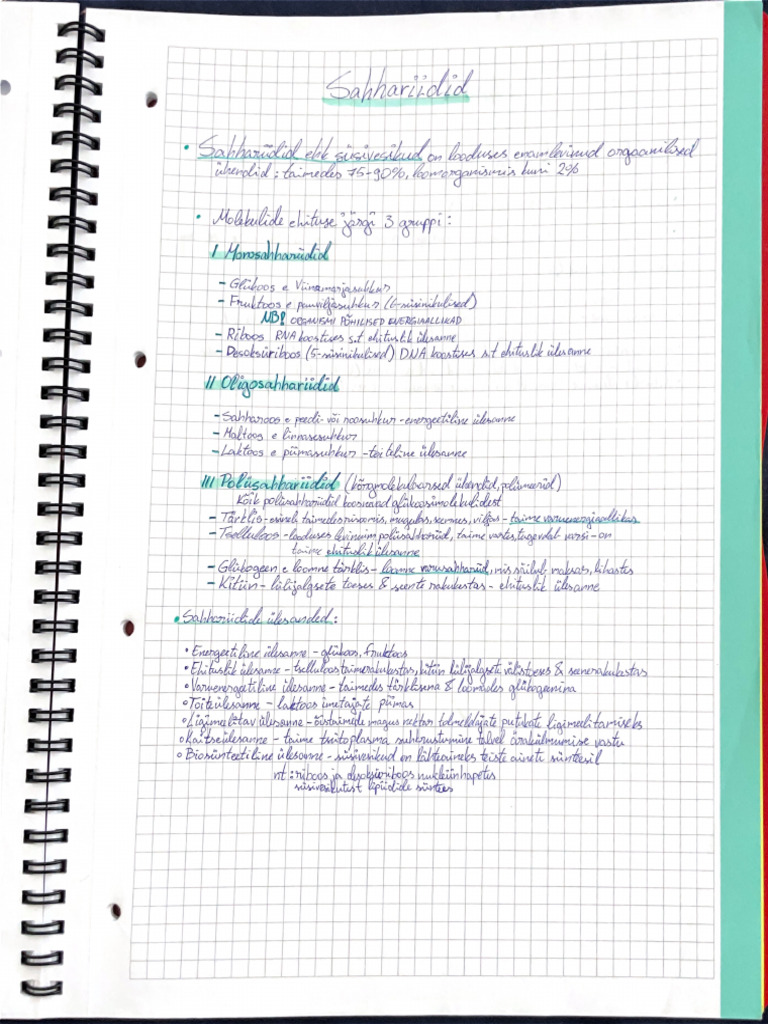 Sahhariidid
• Sahhariidid ehk süsivesikud on looduses enamlevinud orgaanilised
ühendid: taimedes 75-90%, loomorganismis kuni 2%
• Molekulide ehituse järgi 3 gruppi:
I Monosahhariidid
- Glükoos e viinamarjasuhkur
- Fruktoos e puuviljasuhkur (6-süsinikulised)
NB! ORGANISMI PÕHILISED ENERGIAALLIKAD
- Riboos RNA koostises s.t ehituslik ülesanne
- Desoksüriboos (5-süsinikulised) DNA koostises s.t ehituslik ülesanne
II Oligosahhariidid
- Sahharoos e peedi- või roosuhkur - energeetiline ülesanne
- Maltoos e linnasesuhkur
- Laktoos e piimasuhkur - toiteline ülesanne
III Polüsahhariidid (kõrgmolekulaarsed ühendid, polümeerid)
Kõik polüsahhariidid koosnevad glükoosimolekulidest
- Tärklis - esineb taimedes risoomis, mugulas, seemnes, viljas - taime varuenergiaallikas
- Tselluloos - looduses levinuim polüsahhariid, taime vartes, tugevdab varsi - on
taime ehituslik ülesanne
- Glükogeen e loomne tärklis - loomne varusahhariid, mis säilub maksas, lihastes
- Kitiin - lülijalgsete toeses & seente rakukestas - ehituslik ülesanne
• Sahhariidide ülesanded:
• Energeetiline ülesanne - glükoos, fruktoos
• Ehituslik ülesanne - tselluloos taimerakukestas, kitiin lülijalgsete välistoeses & seenerakukestas
• Varuenergeetiline ülesanne - taimedes tärklisena & loomades glükogeenina
• Toiteülesanne - laktoos imetajate piimas
• Ligimeelitav ülesanne - õistaimede magus nektar tolmeldajate putukate ligimeelitamiseks
• Kaitseülesanne - taime tsütoplasma suhkrustumine talvel ärakülmumise vastu
• Biosünteetiline ülesanne - süsivesikud on lähteaineks teiste ainete sünteesil
nt: riboos ja desoksüriboos nukleiinhapetes
süsivesikutest lipiidide süntees